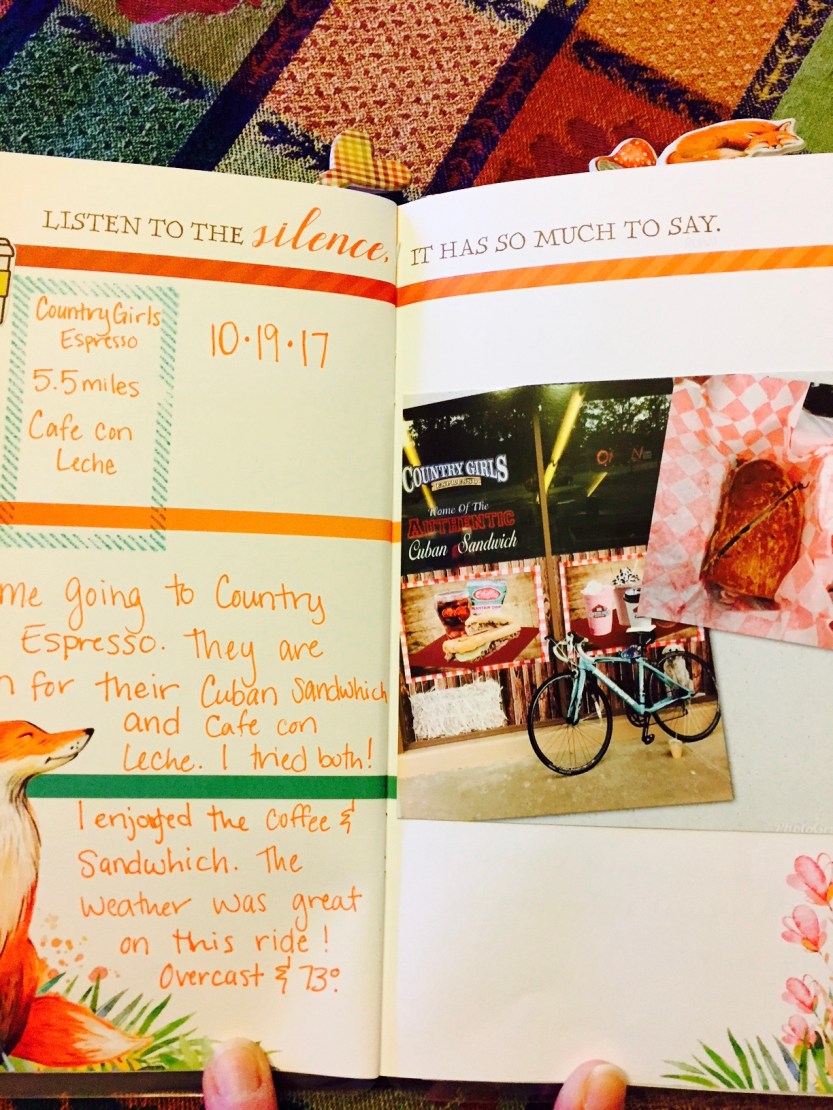 LISTEN TO THE silence,
IT HAS SO MUCH TO SAY.
Country Girls
Espresso
5.5 miles
Cafe con
Leche
10·19·17
me going to Country
Espresso. They are
for their Cuban Sandwhich
and Cafe con
Leche. I tried both!
I enjoyed the coffee &
Sandwhich. The
weather was great
on this ride!
Overcast & 73°.
COUNTRY GIRLS
ESPRESSO
Home Of The
AUTHENTIC
Cuban Sandwich